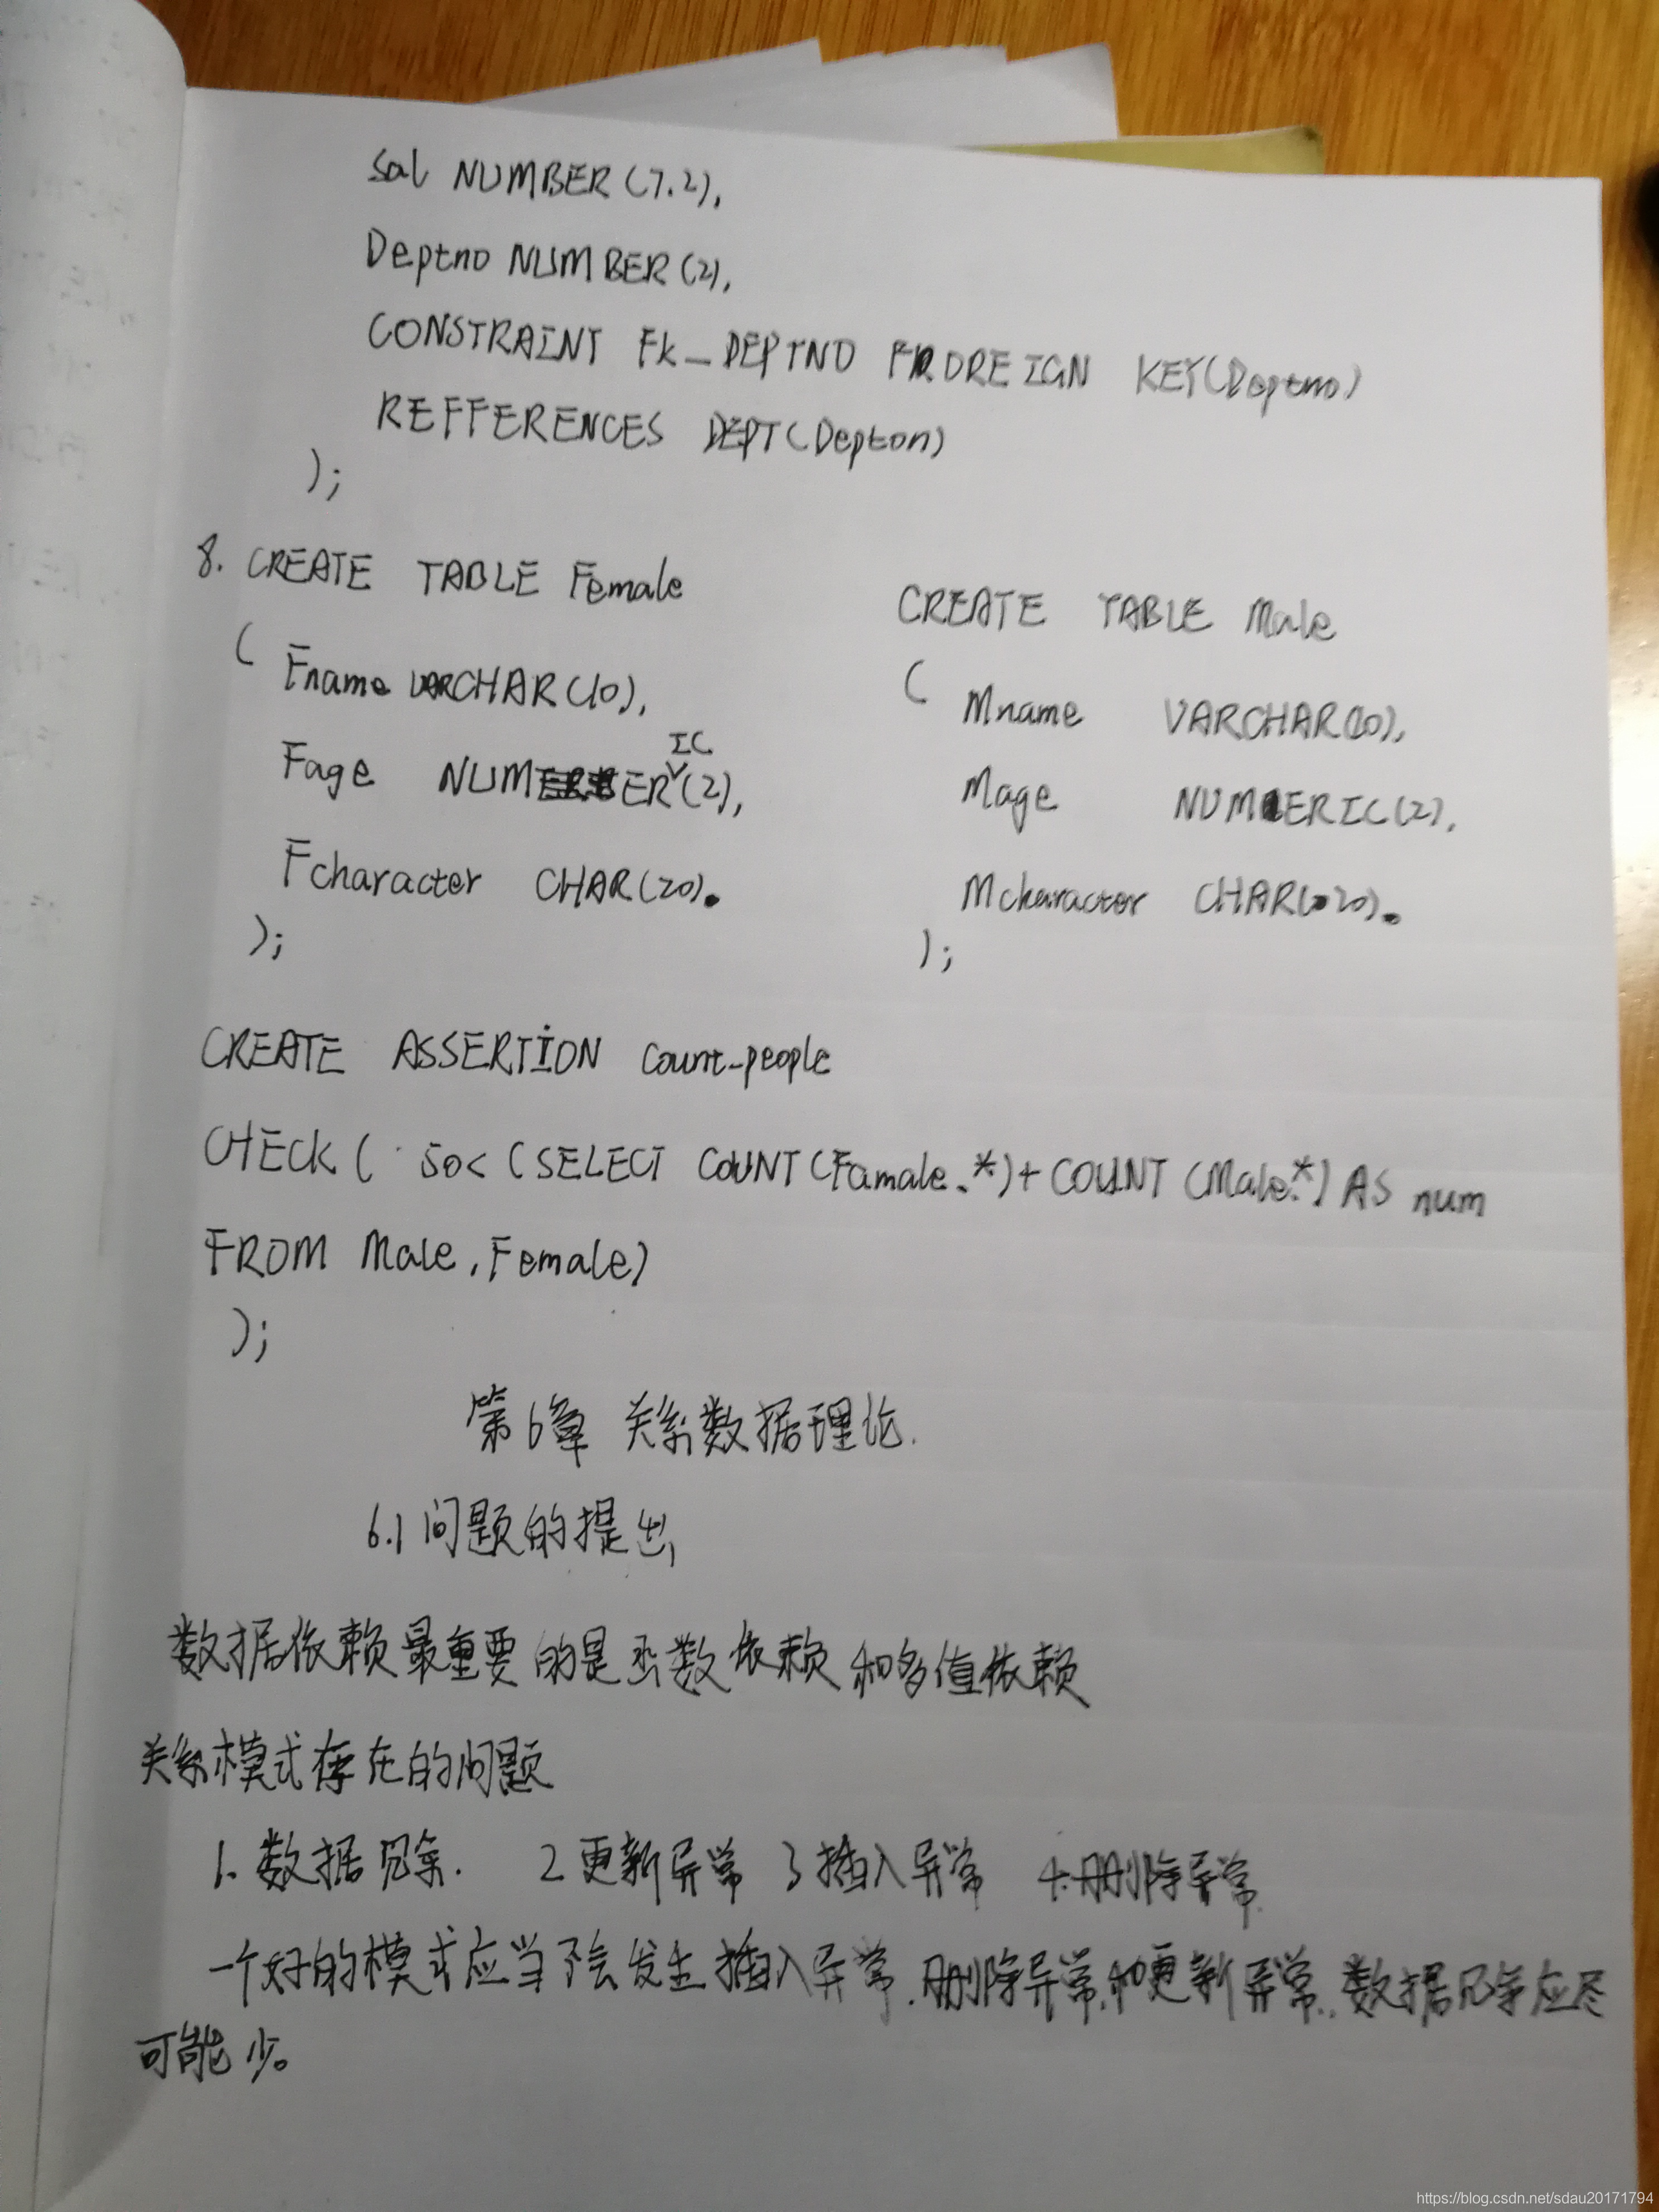 Sal NUMBER(7.2),
Deptno NUMBER(2),
CONSTRAINT FK_DEPTNO FROREIGN KEY(Deptno)
REFFERENCES DEPT(Depton)
);
8. CREATE TABLE Female
(
Fname VARCHAR(10),
Fage NUMERIC(2),
Fcharacter CHAR(20).
);
CREATE TABLE Male
(
Mname VARCHAR(10),
Mage NUMERIC(2),
Mcharacter CHAR(20).
);
CREATE ASSERTION Count-people
CHECK( 50<(SELECT COUNT(Famale.*)+COUNT(Male.*) AS num
FROM Male,Female)
);
第6章 关系数据理论.
6.1 问题的提出
数据依赖最重要的是函数依赖和多值依赖
关系模式存在的问题
1. 数据冗余. 2 更新异常 3 插入异常 4.删除异常.
一个好的模式应当不会发生插入异常.删除异常.和更新异常.数据冗余应尽
可能少。
https://blog.csdn.net/sdau20171794